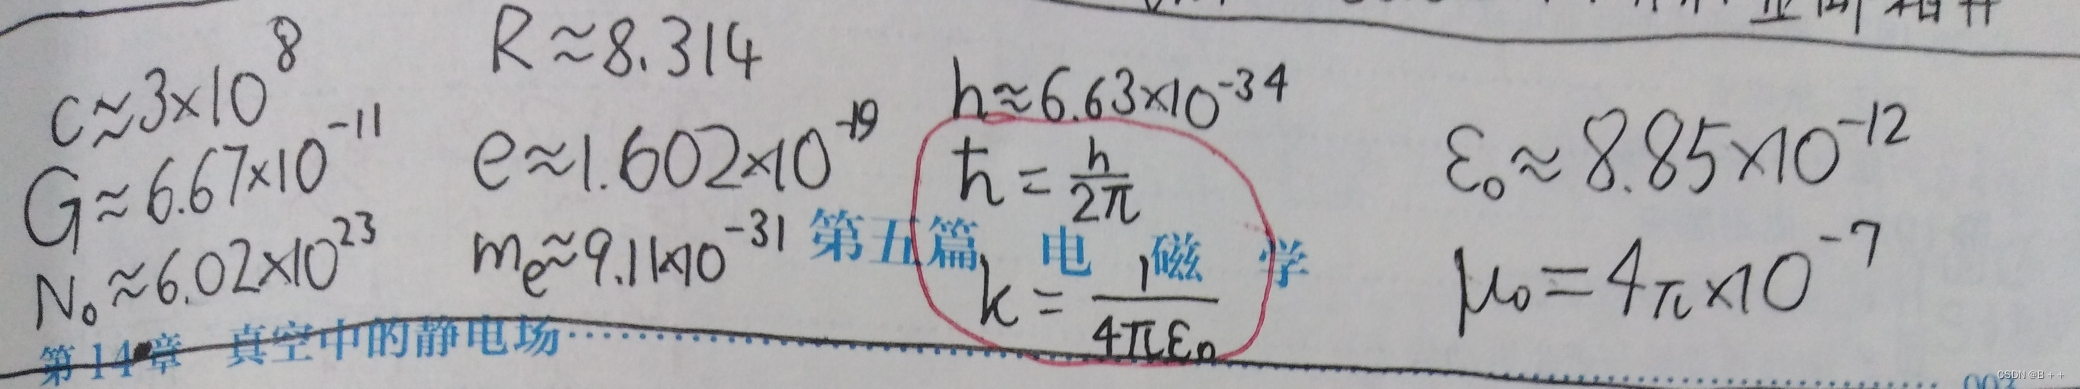 R≈8.314
c≈3×10^8
h≈6.63×10^-34
G≈6.67×10^-11
e≈1.602×10^-19
ħ=h/2π
ε₀≈8.85×10^-12
N₀≈6.02×10^23
mₑ≈9.11×10^-31
第五篇 电 磁 学
k=1/4πε₀
μ₀=4π×10^-7
第14章 真空中的静电场
CSDN @B++